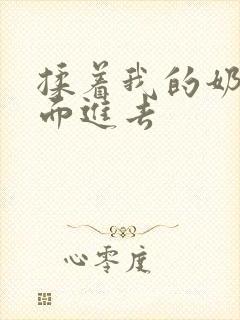 揉着我的奶
而進去
心零度